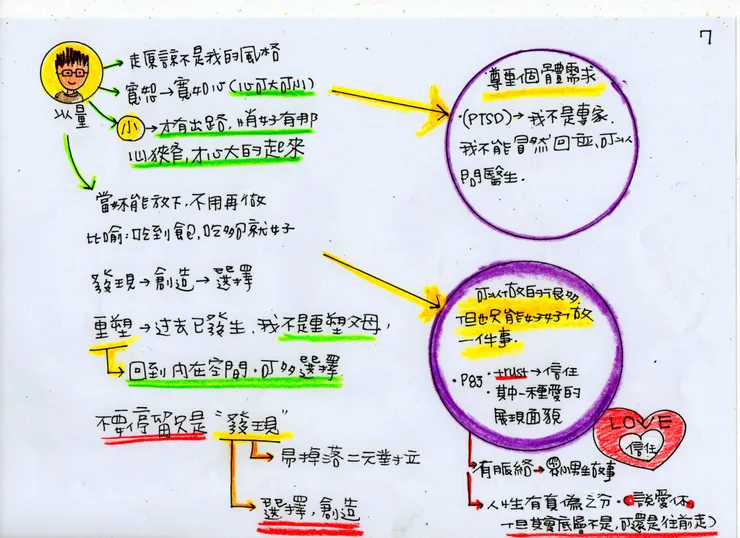 7
以量
走原諒不是我的風格
寬恕→寬如心(心可大可小)
小→才有出路,
心狹窄,才心大的起來
當妳能放下,不用再做
比喻:吃到飽,吃夠就好
發現→創造→選擇
重塑→過去已發生,我不是重塑父母,
回到內在空間,可多選擇
不要停留只是"發現"
易掉落二元對立
選擇,創造
尊重個體需求
·(PTSD)→我不是專家.
我不能冒然回应,可以
問醫生.
可以做的很多,
但也只能好好做
一件事.
·P83·trust→信任
·其中一種愛的
展現面貌
LOVE
信任
有脈絡→男生故事
人性有真偽之分·說愛你,
(但其實底層不是,可還是往前走)